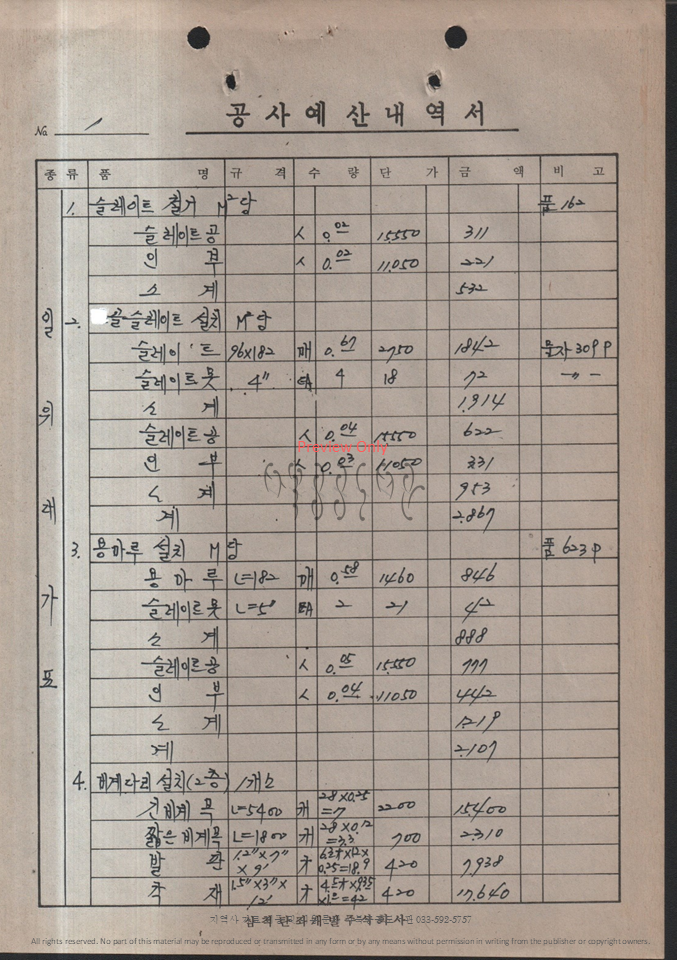 공사예산내역서
No 1
종류 품명 규격 수량 단가 금액 비고
일위대가표
1. 슬레이트 철거 M² 당 품 162
슬레이트공 人 0.02 15,550 311
인부 人 0.02 11,050 221
소계 532
2. 골슬레이트 설치 M² 당
슬레이트 96x182 매 0.67 2750 1842 물자 309 P
슬레이트못 4" EA 4 18 72 -〃-
소계 1,914
슬레이트공 人 0.04 15,550 622
인부 人 0.03 11050 331
소계 953
계 2,867
3. 용마루 설치 M 당 품 623 P
용마루 L=182 매 0.58 1460 846
슬레이트못 L=5" EA 2 21 42
소계 888
슬레이트공 人 0.05 15,550 777
인부 人 0.04 11050 442
소계 1,219
계 2,107
4. 비계다리 설치(2층) 1개소
긴비계목 L=5400 개 28x0.25=7 2200 15,400
짧은비계목 L=1800 개 28x0.12=3.3 700 2,310
발판 1.2"x7"x9' 才 6.3才x12x0.25=18.9 420 7,938
각재 1.5"x3"x12' 才 420 17,640
Preview Only
삼척탄좌개발주식회사
033-592-5757
All rights reserved. No part of this material may be reproduced or transmitted in any form or by any means without permission in writing from the publisher or copyright owners.